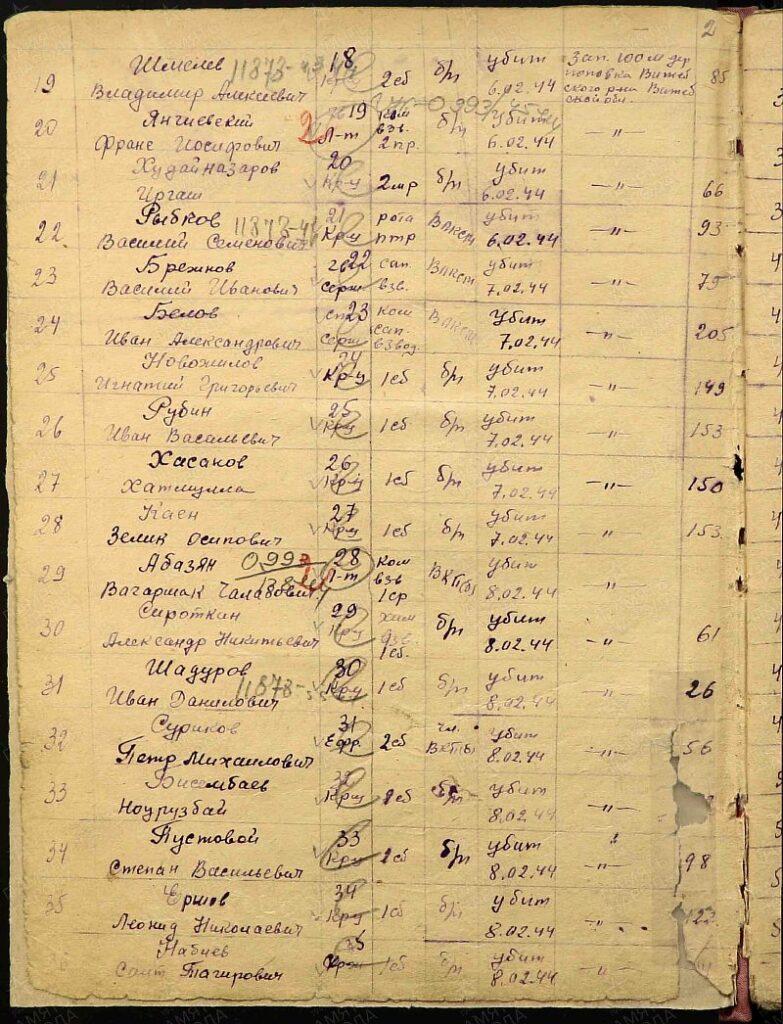 2
Шмелев 18 убит Зап. 100 м дер
19 11873- 2сб б/п Поповка Витеб 85
Владимир Алексеевич 6.02.44 ского р-на Витеб
ской обл.
Янчевский 19 ком б/п убит
20 Л-т взв. -"-
Франс Иосифович 2 пр. 6.02.44
Худайназаров 20 убит
21 Кр-ц 2мр б/п -"- 66
Иргаш 6.02.44
Рыбков 21 рота ВЛКСМ убит
22. 11873- Кр-ц птр -"- 93
Василий Семенович 6.02.44
Брежнов 22 сап. ВЛКСМ убит
23 Серж взв. -"- 75
Василий Иванович 7.02.44
Белов 23 ком ВЛКСМ убит
24 сап. -"- 205
Иван Александрович Серж взвод. 7.02.44
Новожилов 24 убит
25 Кр-ц 1сб б/п -"- 149
Игнатий Григорьевич 7.02.44
Рубин 25 убит
26 Кр-ц 1сб б/п -"- 153
Иван Васильевич 7.02.44
Хасанов 26 убит
27 Кр-ц 1сб б/п -"- 150
Хатмулла 7.02.44
Каен 27 убит
28 Кр-ц 1сб б/п -"- 153
Зелик Осипович 7.02.44
Абазян 0,993 28 ком убит
29 Л-т взв ВКП(б) "
Вагаршак 1ср 8.02.44
Сироткин 29 хим убит
30 Кр-ц взв. б/п -"- 61
Александр Никитьевич 1сб. 8.02.44
Шадуров 30 убит
31 11873- Кр-ц 1сб б/п -"- 26
Иван Данилович 8.02.44
Суриков 31 чл. убит
32 Ефр. 2сб ВКП(б) -"- 56
Петр Михайлович 8.02.44
Бисембаев 32 убит
33 Кр-ц б/п -"-
Ноурузбай 8.02.44
Пустовой 33 убит "
34 Кр-ц 2сб б/п -"- 98
Степан Васильевич 8.02.44
Ершов 34 убит
35 Кр-ц 1сб б/п -"- 122
Леонид Николаевич 8.02.44
Набиев 35 убит
Кр-ц 1сб б/п -"-
Саит Тагирович 8.02.44